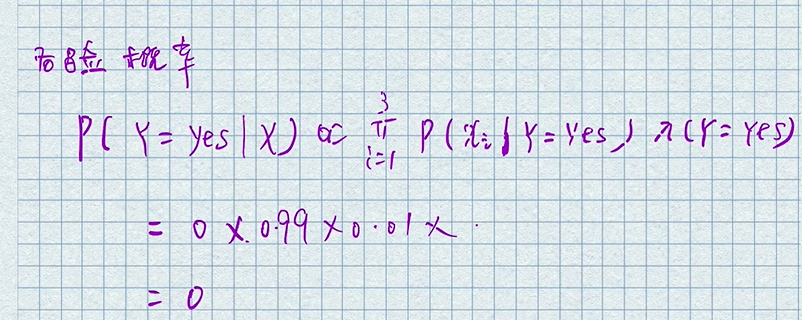 后验概率
P(Y=yes|X) ∝ ∏_{i=1}^{3} P(x_i|Y=Yes) π(Y=Yes)
= 0 × 0.99 × 0.01 × ·
= 0